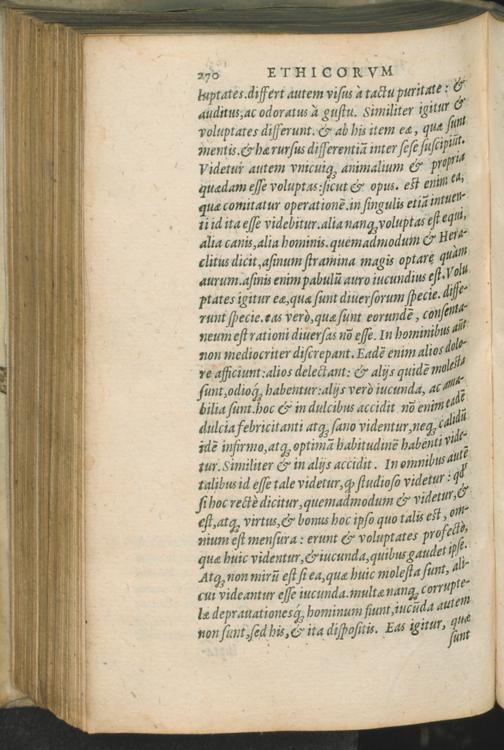 270 ETHICORVM
luptates. differt autem visus à tactu puritate: &
auditus, ac odoratus à gustu. Similiter igitur &
voluptates differunt. & ab his item eæ, quæ sunt
mentis. & hæ rursus differentiā inter sese suscipiūt.
Videtur autem vnicuiq; animalium & propria
quædam esse voluptas: sicut & opus. est enim ea,
quæ comitatur operationē. in singulis etiā intuen-
ti id ita esse videbitur. alia nanq; voluptas est equi,
alia canis, alia hominis. quemadmodum & Hera-
clitus dicit, asinum stramina magis optare quàm
aurum. asinis enim pabulū auro iucundius est. Volu
ptates igitur eæ, quæ sunt diuersorum specie. diffe-
runt specie. eas verò, quæ sunt eorundē, consenta-
neum est rationi diuersas nō esse. In hominibus aūt
non mediocriter discrepant. Eadē enim alios dolo-
re afficiunt: alios delectant: & alijs quidē molesta
sunt, odioq; habentur: alijs verò iucunda, ac ama-
bilia sunt. hoc & in dulcibus accidit nō enim eadē
dulcia febricitanti atq; sano videntur, neq; calidū
idē infirmo, atq; optimā habitudinē habenti vide-
tur. Similiter & in alijs accidit. In omnibus autē
talibus id esse tale videtur, q̄ studioso videtur: qđ
si hoc rectè dicitur, quemadmodum & videtur, &
est, atq; virtus, & bonus hoc ipso quo talis est, om-
nium est mensura: erunt & voluptates profectò,
quæ huic videntur, & iucunda, quibus gaudet ipse.
Atq; non mirū est si ea, quæ huic molesta sunt, ali-
cui videantur esse iucunda. multæ nanq; corrupte-
læ deprauationesq́; hominum fiunt, iucūda autem
non sunt, sed his, & ita dispositis. Eas igitur, quæ
sunt